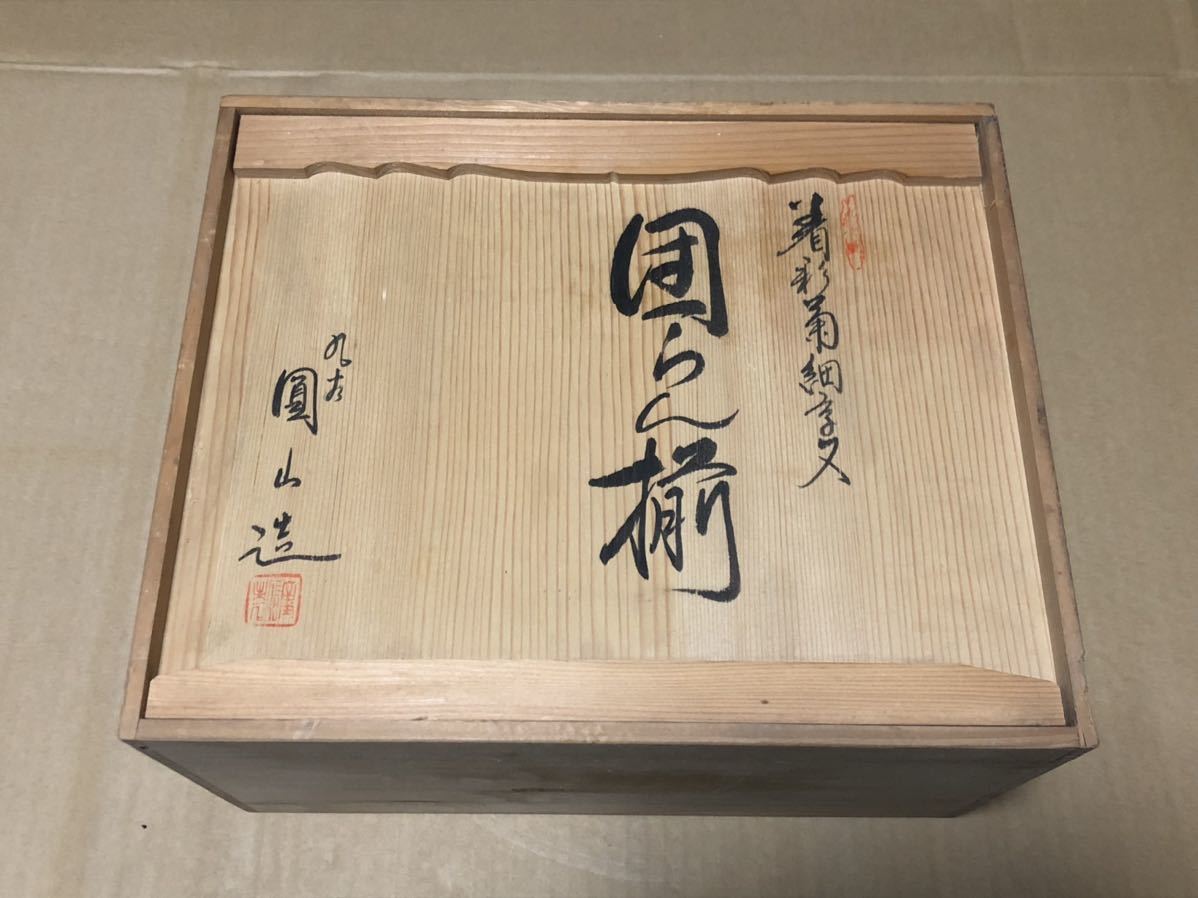 着彩菊細字文
団らん揃
九谷
圓山造